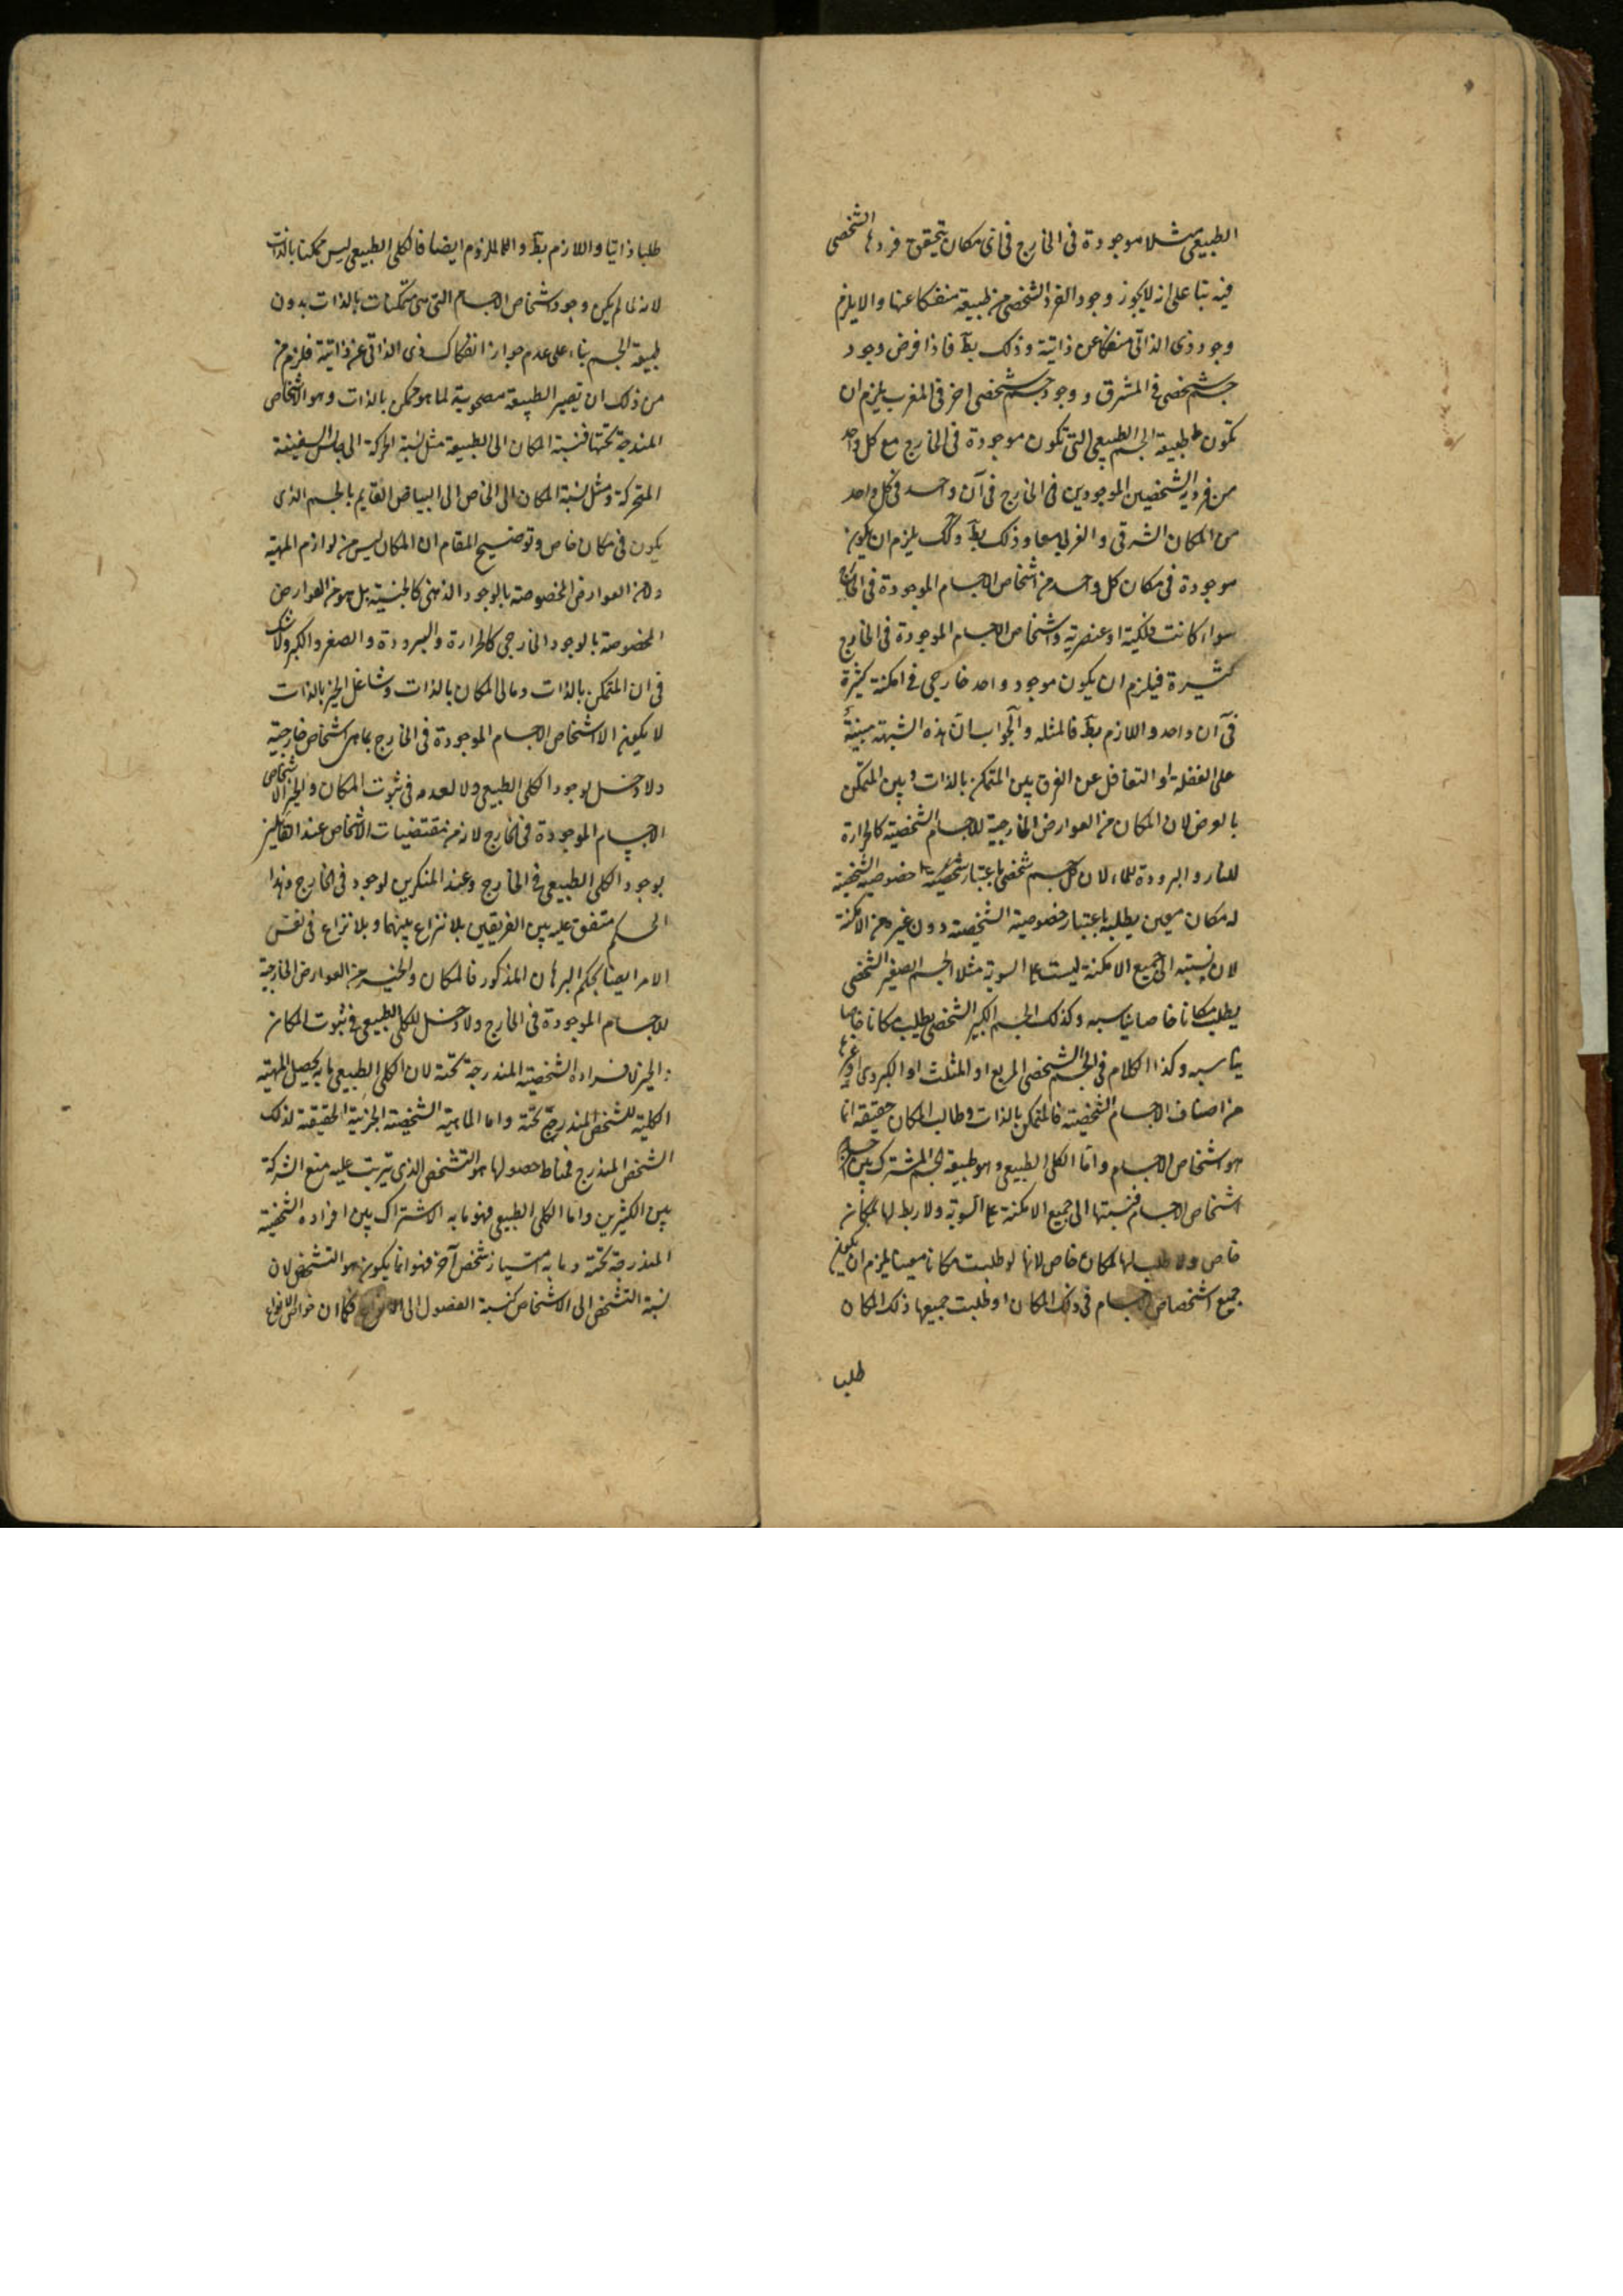 الطبيعى مثلا موجودة فى الخارج فى اى مكان يتحقق فردها الشخصى
فيه بنا على انه لا يجوز وجود الفرد الشخصى من طبيعة منفكا عنها والا يلزم
وجود ذى الذاتى منفكا عن ذاتية وذلك بط فاذا فرض وجود
جسم شخصى فى المشرق ووجود جسم شخصى اخر فى المغرب يلزم ان
تكون طبيعة الجسم الطبيعى التى تكون موجودة فى الخارج مع كل واحد
من فرديه الشخصيين الموجودين فى الخارج فى آن واحد فى كل واحد
من المكان الشرقى والغربى معا وذلك بط وكك يلزم ان يكون
موجودة فى مكان كل واحد من اشخاص الاجسام الموجودة فى الخارج
سواء كانت فلكية او عنصرية واشخاص الاجسام الموجودة فى الخارج
كثيرة فيلزم ان يكون موجود واحد خارجى فى امكنة كثيرة
فى آن واحد واللازم بط فالمثله والجواب ان هذه الشبهة مبنية
على الغفلة او التغافل عن الفرق بين المتمكن بالذات وبين المتمكن
بالعرض لان المكان من العوارض الخارجية للاجسام الشخصية كالحرارة
للنار والبرودة للماء لان كل جسم شخصى باعتبار خصوصية الشخصية
له مكان معين يطلبه باعتبار خصوصية الشخصية دون غيره من الامكنة
لان نسبته الى جميع الامكنة ليست على السوية مثلا الجسم الصغير الشخصى
يطلب مكانا خاصا يناسبه وكذلك الجسم الكبير الشخصى يطلب مكانا خاصا
يناسبه وكذا الكلام فى الجسم الشخصى المربع او المثلث او الكروى او غيرها
من اصناف الاجسام الشخصية فالمتمكن بالذات وطالب المكان حقيقة انما
هو اشخاص الاجسام واما الكلى الطبيعى وهو طبيعة الجسم المشترك بين
اشخاص الاجسام فنسبتها الى جميع الامكنة على السوية ولا ربط لها بمكان
خاص ولا طلب لها لمكان خاص لانها لو طلبت مكانا معينا يلزم ان يكون
جميع اشخصاص الاجسام فى ذلك المكان او طلبت جميعها ذلك المكان
طلبا
طلبا ذاتيا واللازم بط والملزوم ايضا فالكلى الطبيعى ليس ممكنا بالذات
لانه لما لم يكن وجود اشخاص الاجسام التى هى متمكنات بالذات بدون
طبيعة الجسم بناء على عدم جواز انفكاك ذى الذاتى عن ذاتية فلزم من
من ذلك ان تصير الطبيعة مصحوبة لما هو ممكن بالذات وهو الاشخاص
المندرجة تحتها فنسبة المكان الى الطبيعة مثل نسبة الحركة الى جالس السفينة
المتحركة ومثل نسبة المكان الى الخاص الى البياض القايم بالجسم الذى
يكون فى مكان خاص وتوضيح المقام ان المكان ليس من لوازم المهية
ولا من العوارض المخصوصة بالوجود الذهنى كالجنسية بل هو من العوارض
المخصوصة بالوجود الخارجى كالحرارة والبرودة والصغر والكبر ولا شك
فى ان المتمكن بالذات ومالى المكان بالذات وشاغل الحيز بالذات
لا يكون الا اشخاص الاجسام الموجودة فى الخارج بما هى اشخاص خارجية
ولا دخل لوجود الكلى الطبيعى ولا لعدمه فى ثبوت المكان والحيز لاشخاص
الاجسام الموجودة فى الخارج لانه من مقتضيات الاشخاص عند القائلين
بوجود الكلى الطبيعى فى الخارج وعند المنكرين لوجوده فى الخارج وهذا
الحكم متفق عليه بين الفريقين بلا نزاع بينهما وبلا نزاع فى نفس
الامر ايضا بحكم البرهان المذكور فالمكان والحيز من العوارض الخارجية
للاجسام الموجودة فى الخارج ولا دخل للكلى الطبيعى فى ثبوت المكان
والحيز لافراده الشخصية المندرجة تحته لان الكلى الطبيعى ما به يحصل المهية
الكلية للشخص المندرج تحته واما الماهية الشخصية الجزئية الحقيقة لذلك
الشخص المندرج فمناط حصولها هو التشخص الذى يترتب عليه منع الشركة
بين الكثيرين واما الكلى الطبيعى فهو ما به الاشتراك بين افراده الشخصية
المندرجة تحته وما به امتياز شخص آخر فهو انما يكون هو التشخص لان
نسبة التشخص الى الاشخاص كنسبة الفصول الى الانواع فكما ان خواص الانواع